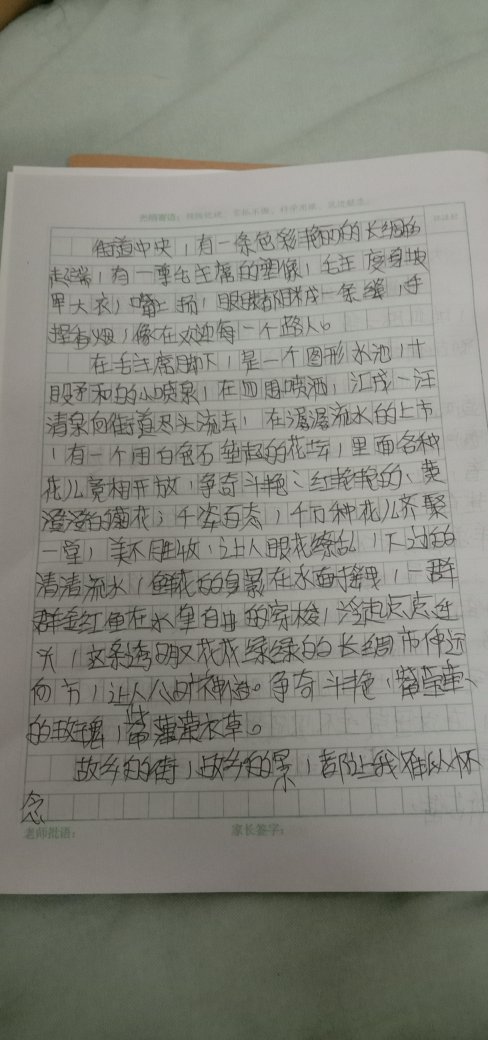 街道中央，有一条色彩艳的的长绸的
起端，有一尊毛主席的塑像，毛主席身披
旱大衣，嘴上扬，眼睛都眯成一条缝，手
捏香烟，像在欢迎每一个路人。
在毛主席脚下，是一个图形水池，十
股柔和的小喷泉，在四周喷洒，汇成一汪
清泉向街道尽头流去，在潺潺流水的上市
，有一个用白色石垫起的花坛，里面各种
花儿竟相开放，争奇斗艳、红艳艳的、黄
澄澄的菊花，千姿百态，千万种花儿齐聚
一堂，美不胜收，让人眼花缭乱，下过的
清清流水，鲜花的身影在水面，一群
群金红鱼在水里自由的穿梭，泛起点点涟
，这条透明又绿绿的长绸布伸
向方，让人心旷神怡。争奇斗艳，
的玫瑰，水草。
故乡的街，故乡的景，都让我难以怀
念
老师批语： 家长签字：